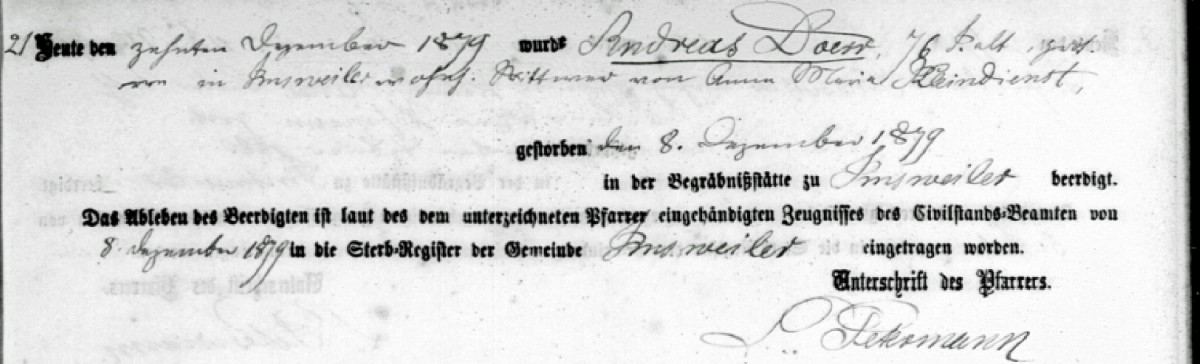 21 Heute den zehnten Dezember 1879 wurde Andreas Doerr, 76 J. alt,
in Imsweiler wohnh. Wittwer von Anna Maria Kleindienst,
gestorben den 8. Dezember 1879
in der Begräbnißstätte zu Imsweiler beerdigt.
Das Ableben des Beerdigten ist laut des dem unterzeichneten Pfarrer eingehändigten Zeugnisses des Civilstands-Beamten von
8. Dezember 1879 in die Sterb-Register der Gemeinde Imsweiler eingetragen worden.
Unterschrift des Pfarrers.